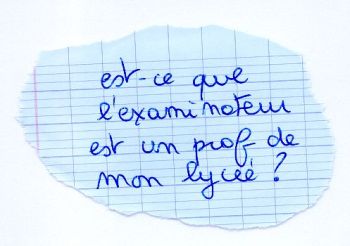 est-ce que
l'examinateur
est un prof de
mon lycée ?